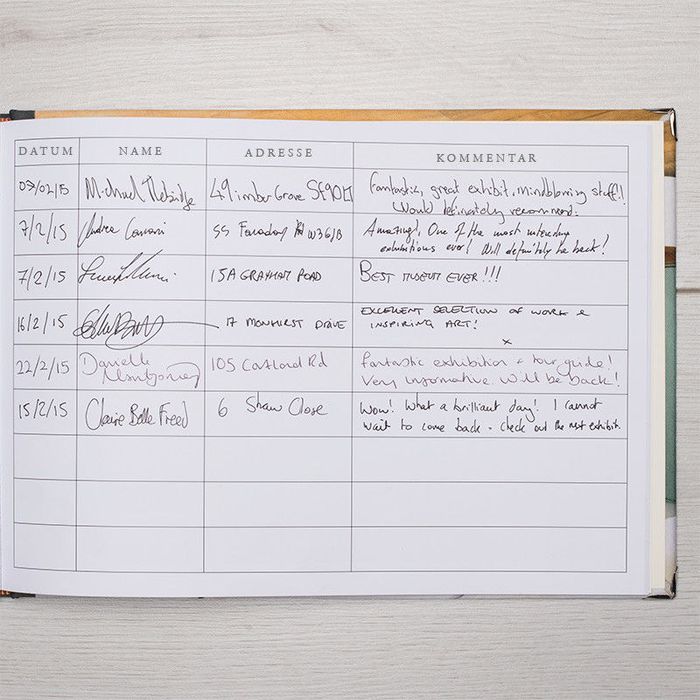 DATUM NAME ADRESSE KOMMENTAR
03/02/15 Michael 49 Grove Fantastic, great exhibit, mindblowing stuff!!
Would definately recommend.
7/2/15 Andrea 55 Faraday W36JB Amazing!, One of the most interesting
exhibitions ever! Will definitely be back!
7/2/15 15A GRAYHAM ROAD BEST MUSEUM EVER!!!
16/2/15 17 MONHURST DRIVE EXCELLENT SELECTION OF WORK &
INSPIRING ART!
x
22/2/15 Danielle Montgomery 105 Cartland Rd Fantastic exhibition + tour guide!
Very informative. Will be back!
15/2/15 Claire Belle Freed 6 Shaw Close Wow! What a brilliant day! I cannot
wait to come back - check out the next exhibit.